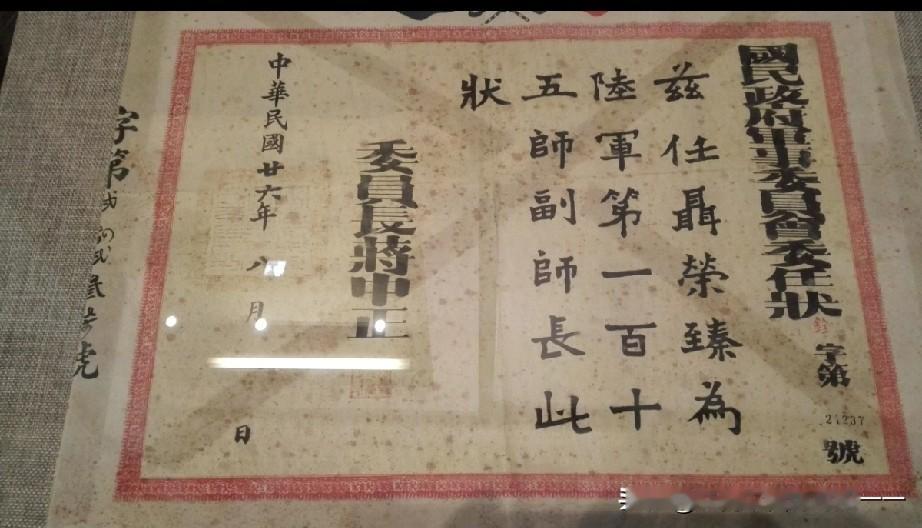 國民政府軍事委員會委任狀
銓字第21237號
茲任聶榮臻為
陸軍第一百十
五師副師長此
狀
委員長蔣中正
中華民國廿六年八月 日
字第
號